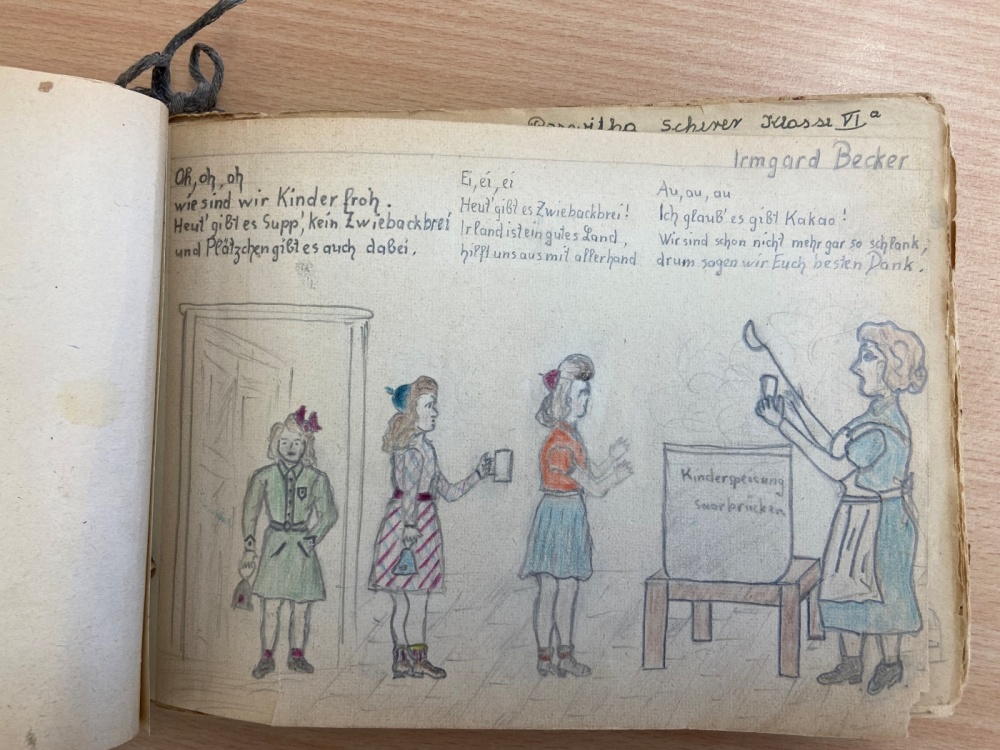 Scherer Klasse VI a
Irmgard Becker
Oh, oh, oh
wie sind wir Kinder froh.
Heut' gibt es Supp', kein Zwiebackbrei
und Plätzchen gibt es auch dabei.
Ei, ei, ei
Heut' gibt es Zwiebackbrei!
Irland ist ein gutes Land,
hilft uns aus mit allerhand
Au, au, au
Ich glaub' es gibt Kakao!
Wir sind schon nicht mehr gar so schlank,
drum sagen wir Euch besten Dank.
Kinderspeisung
Saarbrücken